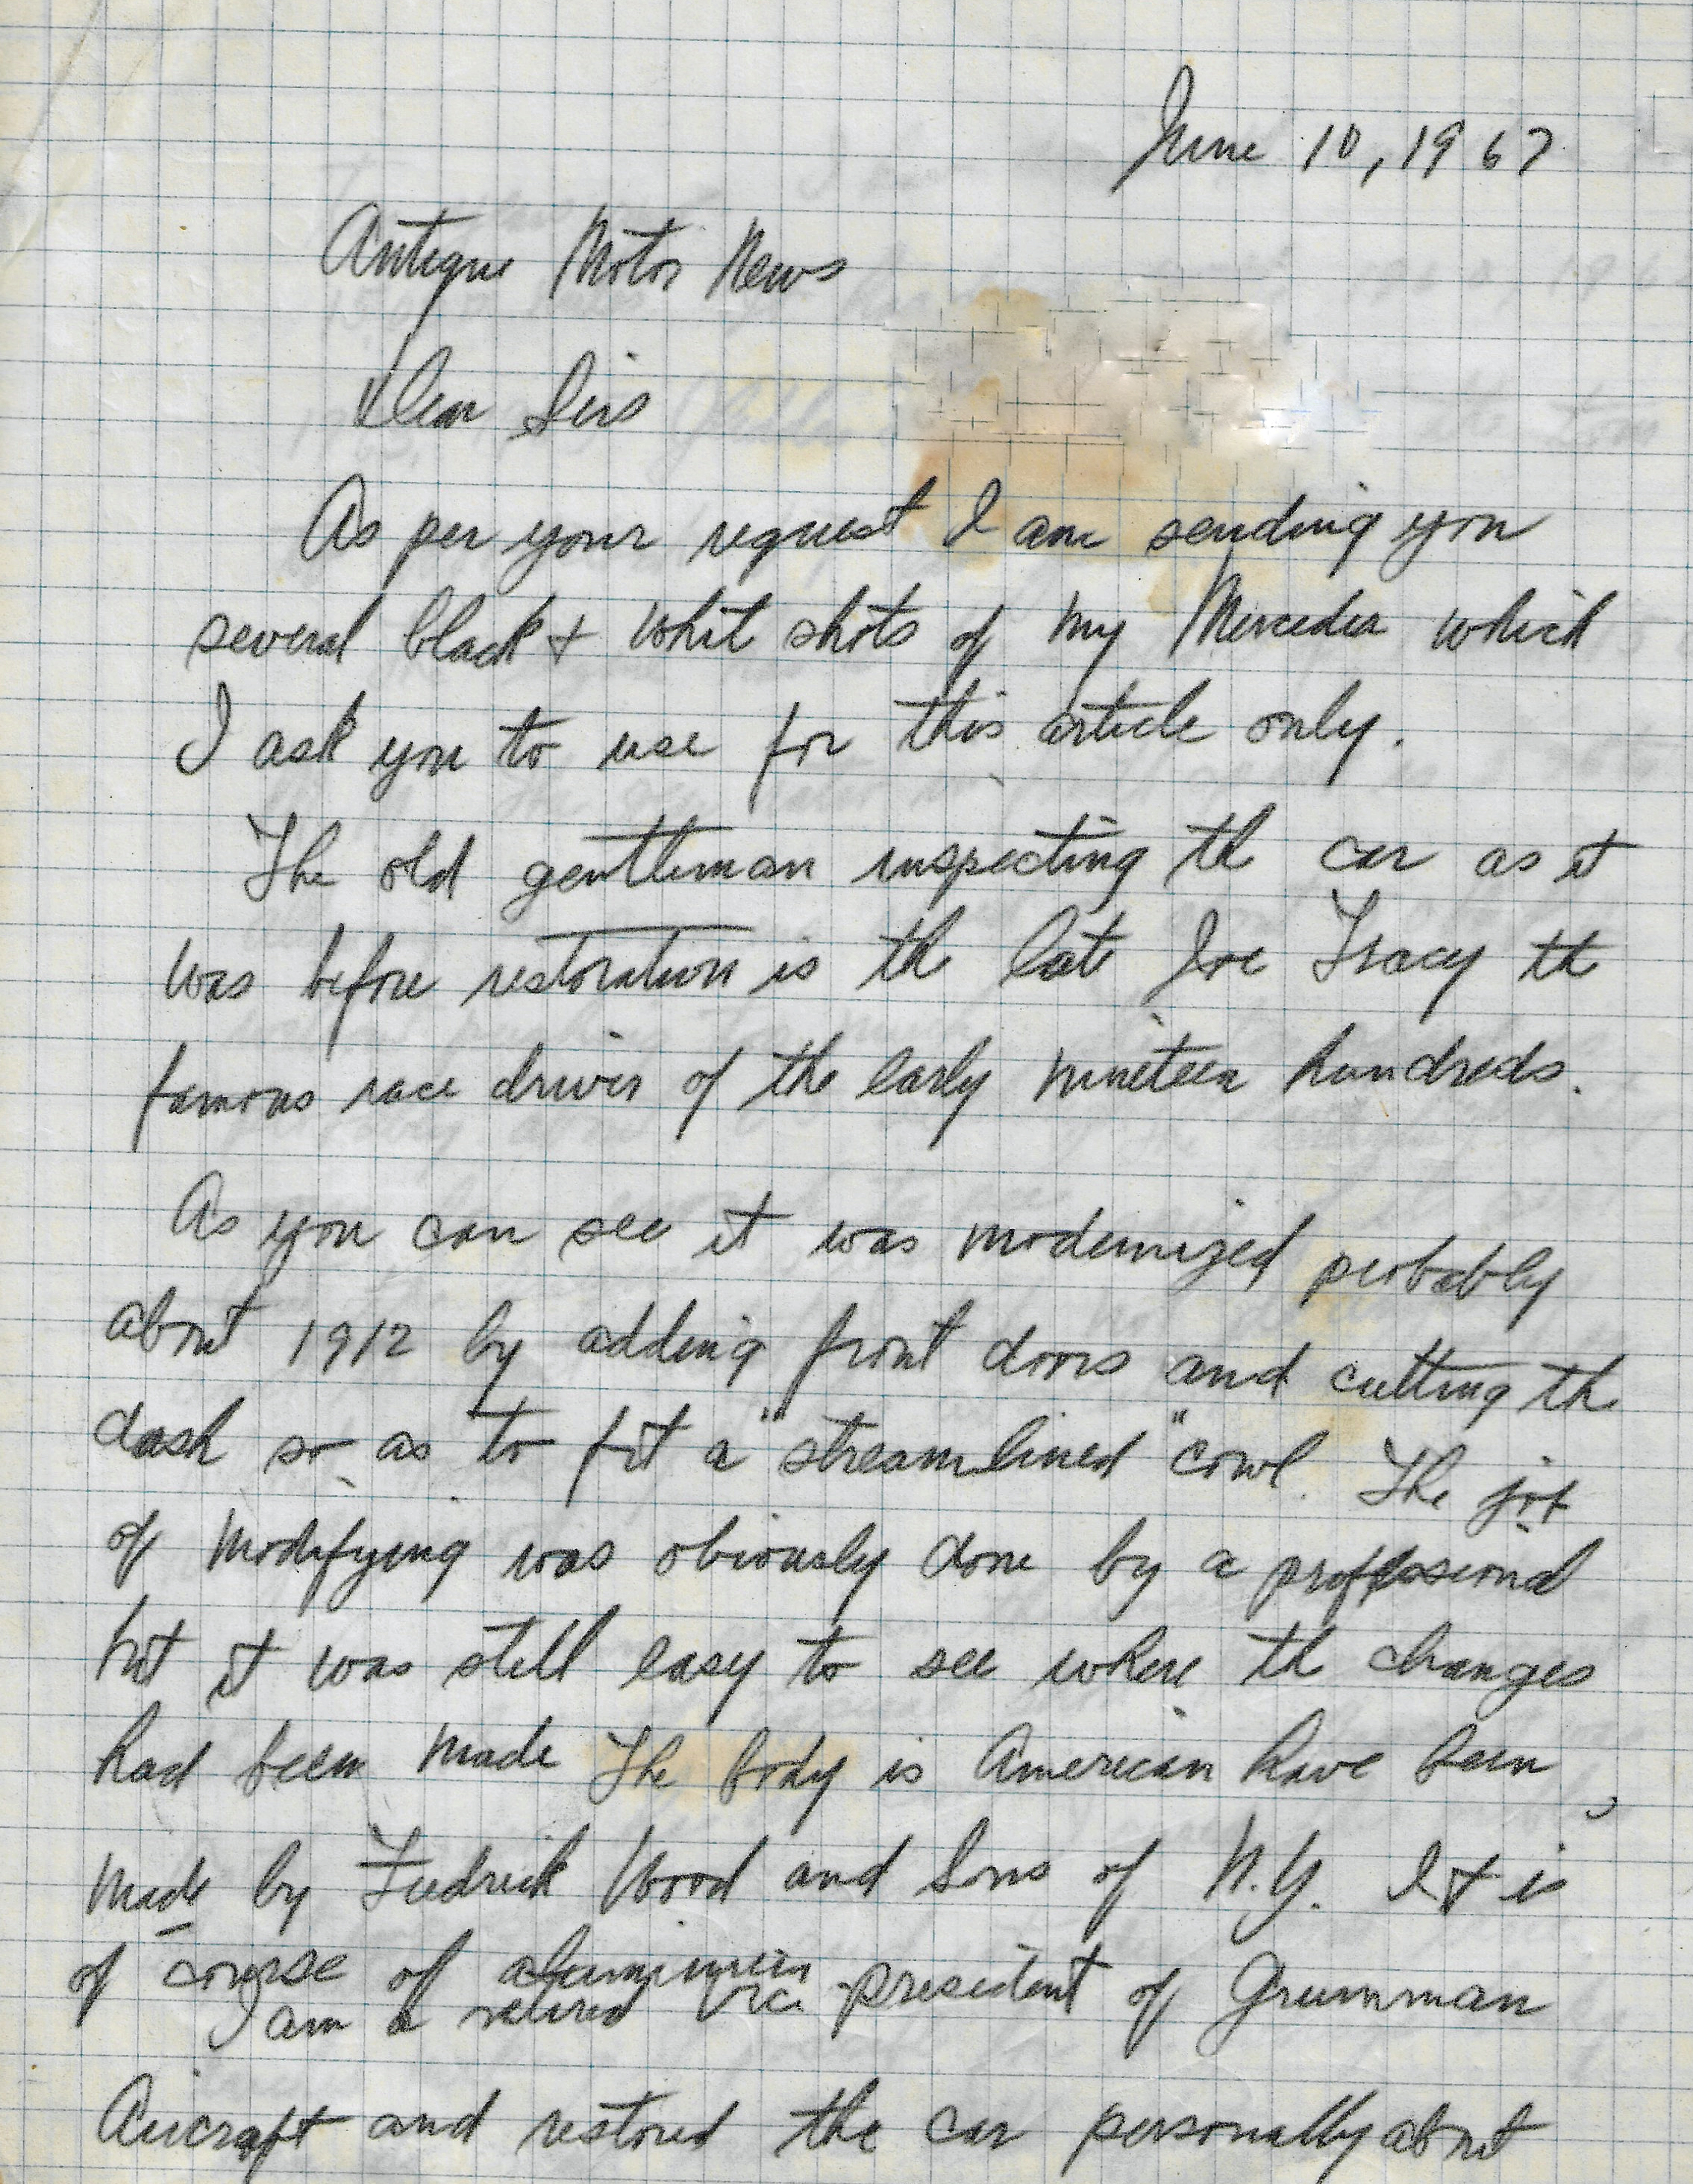 June 10, 1967
Antique Motor News
Dear Sirs
As per your request I am sending you
several black + whit shots of my Mercedes which
I ask you to use for this article only.
The old gentleman inspecting th car as it
was before restoration is th late Joe Tracy th
famous race driver of the early nineteen hundreds.
As you can see it was modernized probably
about 1912 by adding front doors and cutting th
dash so as to fit a "streamlined" cowl. The job
of modifying was obviously done by a professional
but it was still easy to see where th changes
had been made The body is American have been,
made by Fredrick Wood and Sons of N.Y. It is
of course of aluminum
I am a retired Vice-president of Grumman
Aircraft and restored the car personally about